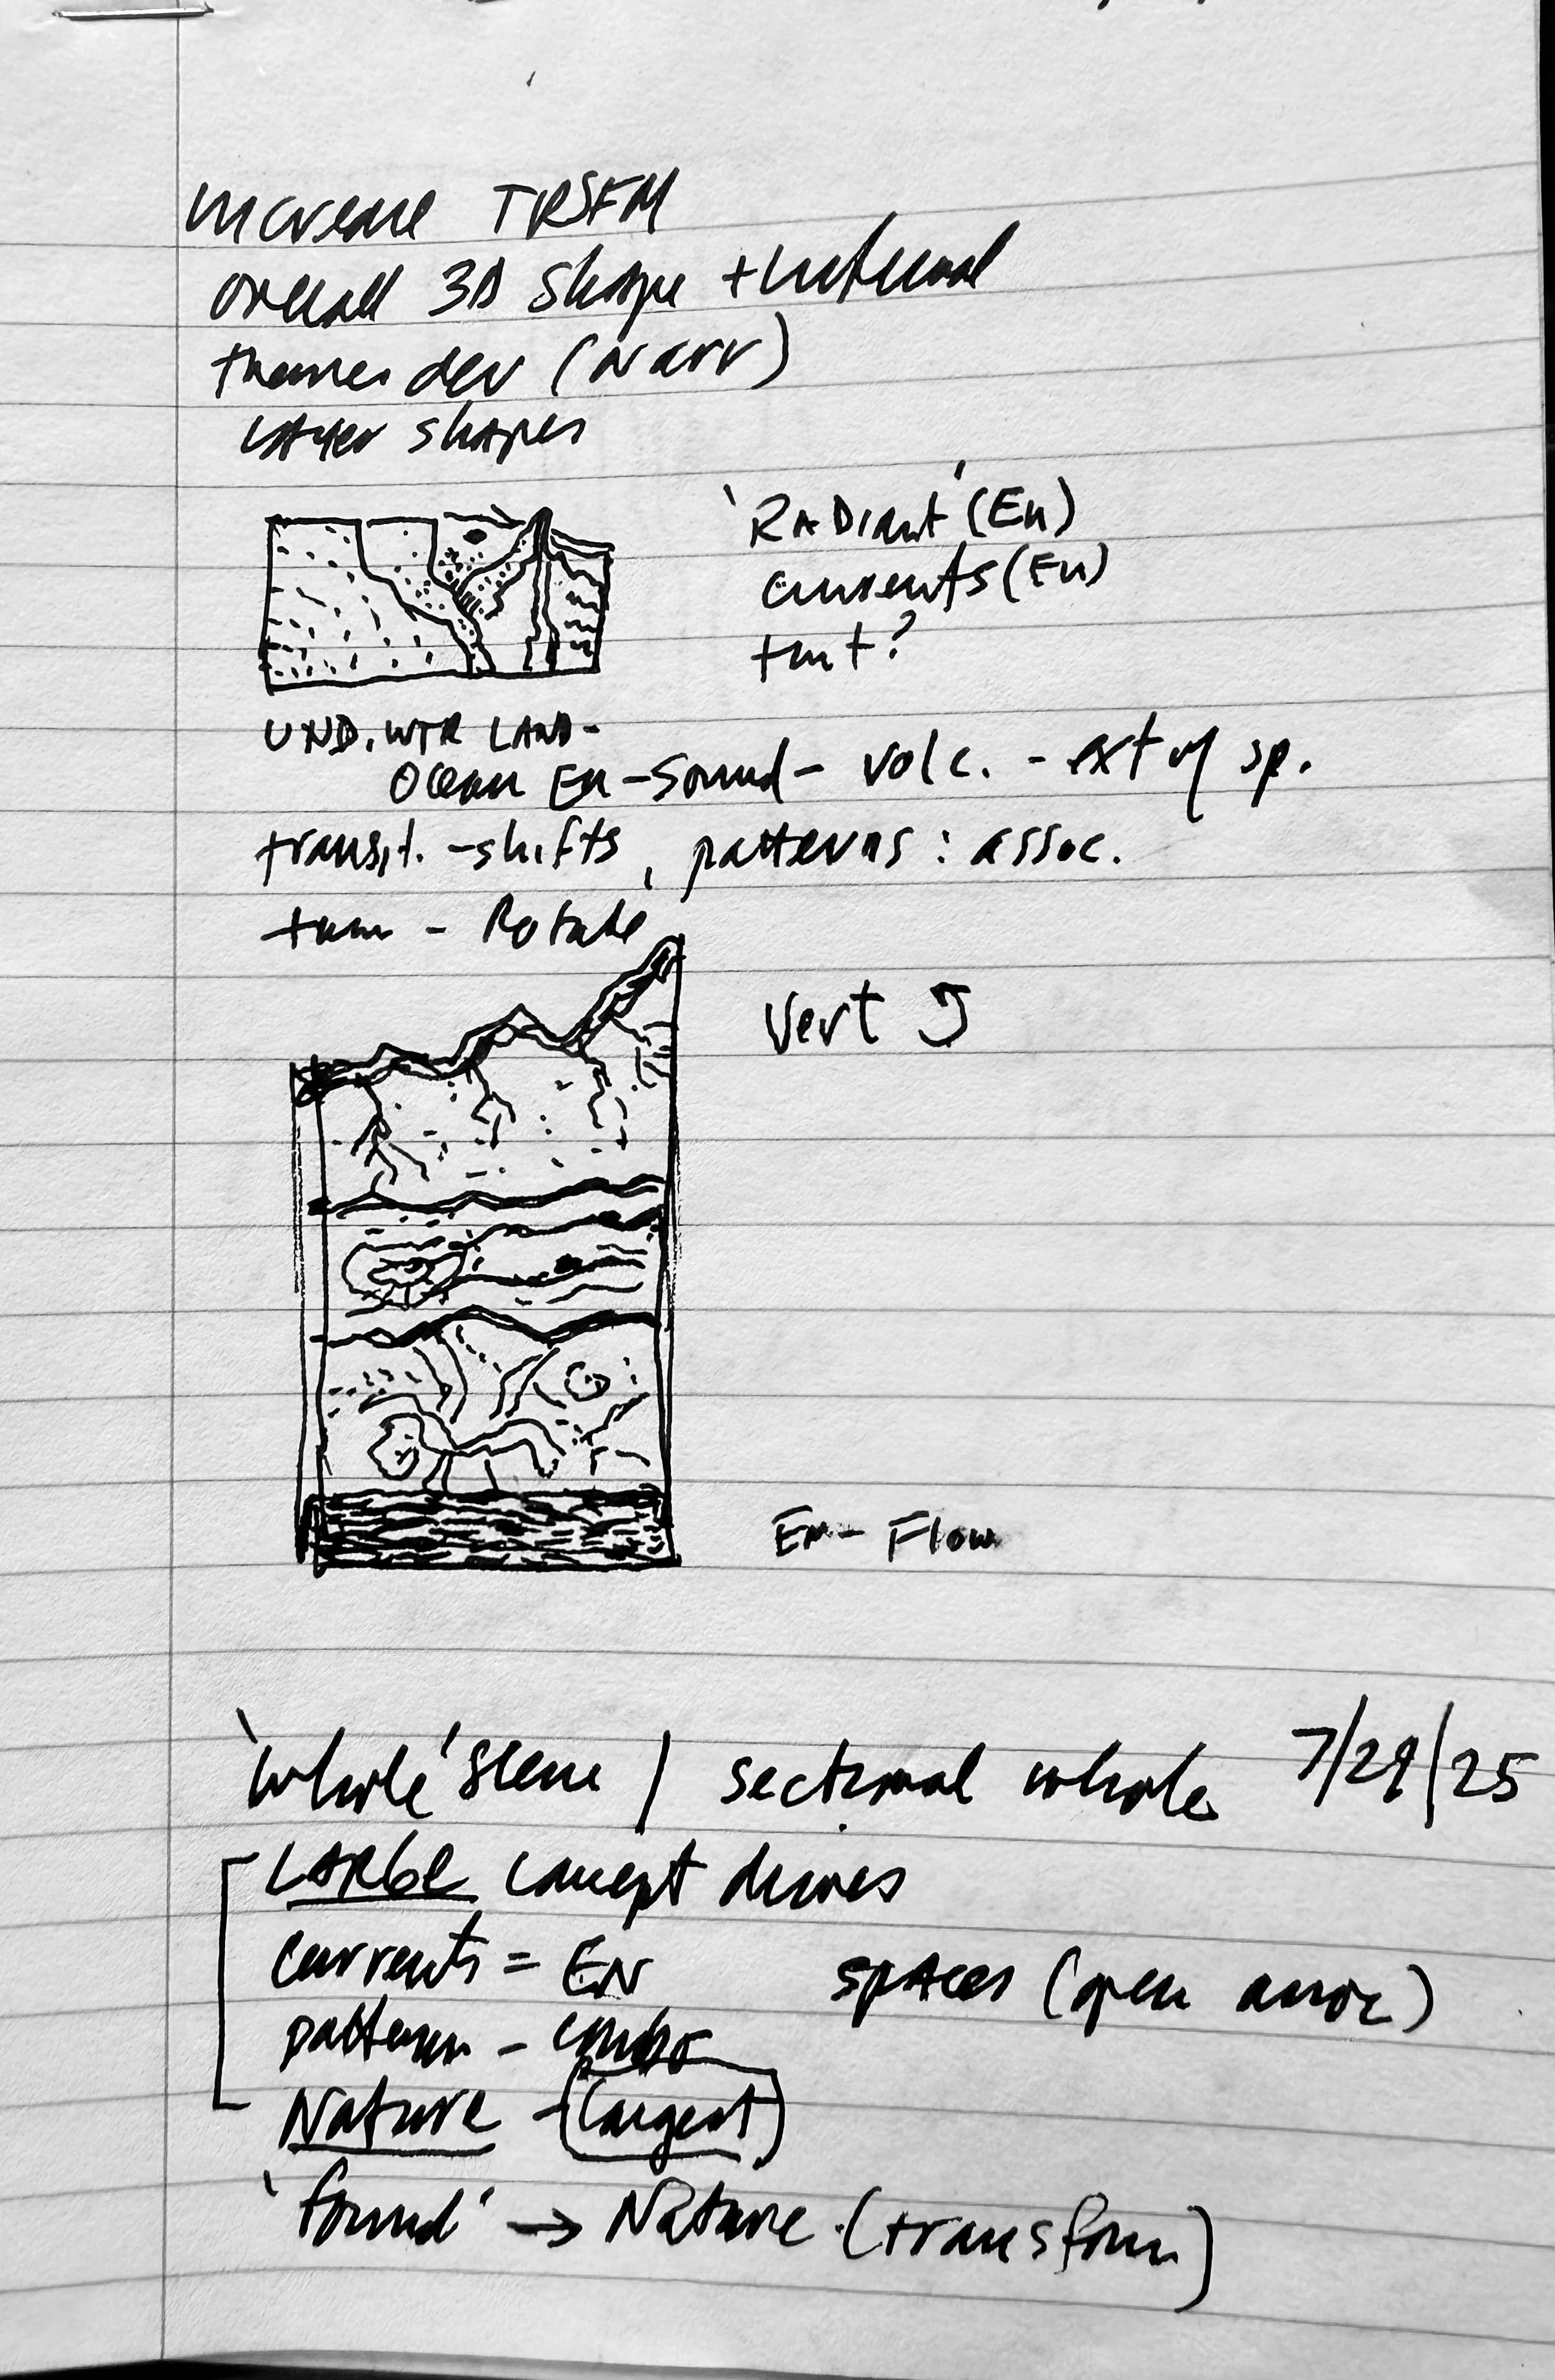 increase TRSFM
overall 3D shape + internal
themes dev (narr)
Layer shapes
'RADiant' (En)
currents (En)
UND. WTR LAND-
Ocean En - Sound - volc. - ext of sp.
transit. - shifts, patterns : assoc.
turn - Rotate
Vert
En - Flow
'whole' scene / sectional whole 7/29/25
LARGE concept drives
currents = EN
spaces (open
pattern - combo
Nature - (largest)
'found' → Nature (transform)